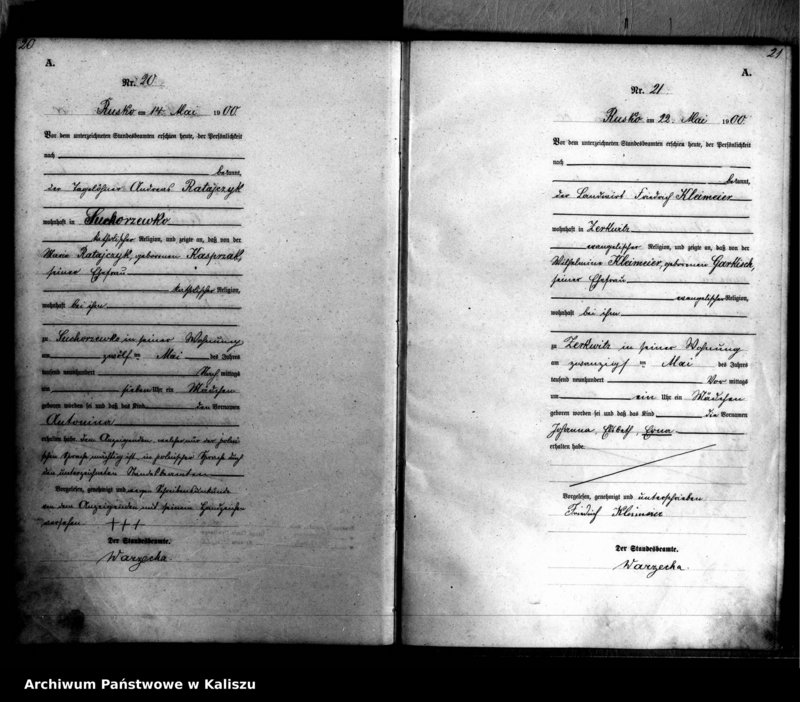 20
A.
Nr. 20
Rusko am 14. Mai 1900.
Vor dem unterzeichneten Standesbeamten erschien heute, der Persönlichkeit
nach
bekannt,
der Tagelöhner Andreas Ratajczyk
wohnhaft in Suchorzewko
katholischer Religion, und zeigte an, daß von der
Marie Ratajczyk, geborenen Kasprzak,
seiner Ehefrau
katholischer Religion,
wohnhaft bei ihm
zu Suchorzewko in seiner Wohnung
am zwölften Mai des Jahres
tausend neunhundert Nachmittags
um sieben Uhr ein Mädchen
geboren worden sei und daß das Kind den Vornamen
Antonina
erhalten habe. dem Anzeigenden, welcher nur der polni-
schen Sprache mächtig ist, in polnischer Sprache durch
den unterzeichneten Standesbeamten
Vorgelesen, genehmigt und wegen Schreibensunkunde
von dem Anzeigenden mit seinem Handzeichen
versehen +++
Der Standesbeamte.
Warzecha.
21
A.
Nr. 21
Rusko am 22. Mai 1900.
Vor dem unterzeichneten Standesbeamten erschien heute, der Persönlichkeit
nach
bekannt,
der Landwirt Friedrich Kleimeier
wohnhaft in Zerkwitz
evangelischer Religion, und zeigte an, daß von der
Wilhelmine Kleimeier, geborenen Garkisch,
seiner Ehefrau
evangelischer Religion,
wohnhaft bei ihm
zu Zerkwitz in seiner Wohnung
am zwanzigsten Mai des Jahres
tausend neunhundert Vormittags
um ein Uhr ein Mädchen
geboren worden sei und daß das Kind die Vornamen
Johanna, Elsbeth, Erna
erhalten habe.
Vorgelesen, genehmigt und unterschrieben
Friedrich Kleimeier
Der Standesbeamte.
Warzecha.
Archiwum Państwowe w Kaliszu